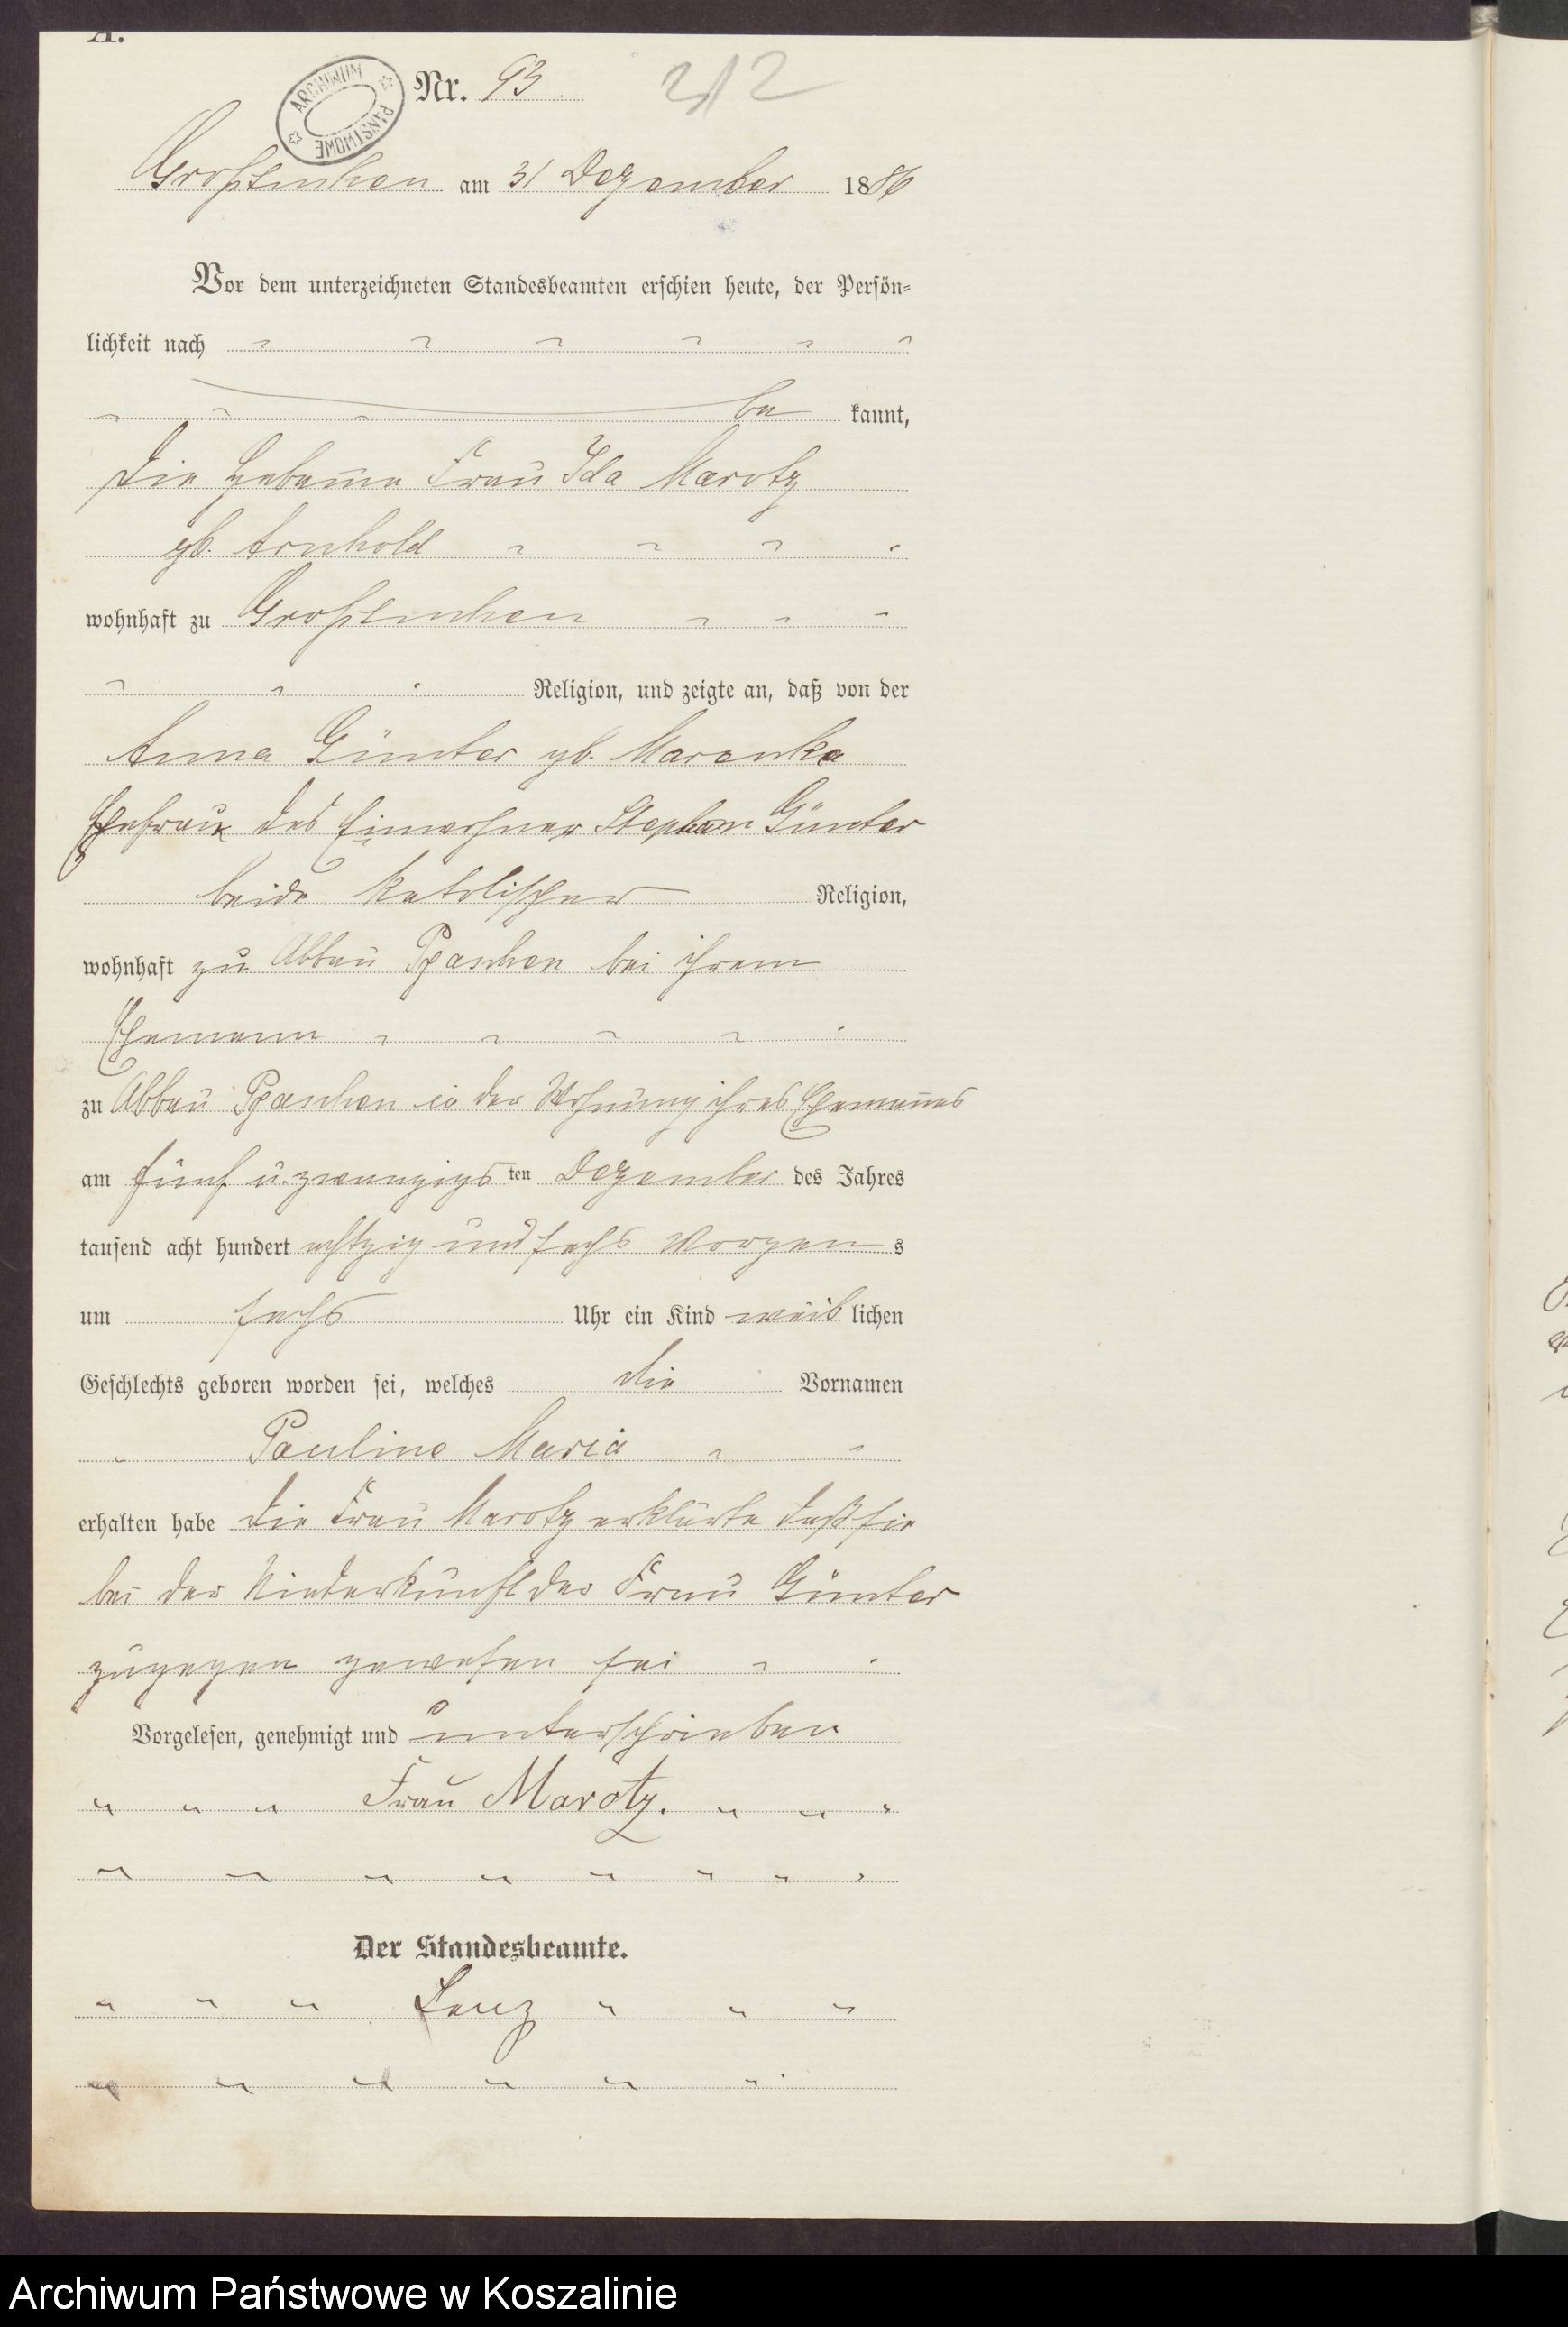 A.
ARCHIWUM PAŃSTWOWE
Nr. 93 212
am 31 Dezember 1886
Vor dem unterzeichneten Standesbeamten erschien heute, der Persön=
lichkeit nach
be kannt,
die Hebamme Frau Ida Marotz
gb. Arnhold
wohnhaft zu
Religion, und zeigte an, daß von der
Anna Günter gb. Maronke
Ehefrau des Einwohner Stephan Günter
beide katolischer Religion,
wohnhaft zu Abbau bei ihrem
Ehemann
zu Abbau in der Wohnung ihres Ehemannes
am fünf u. zwanzigs ten Dezember des Jahres
tausend acht hundert achtzig und sechs Morgen s
um sechs Uhr ein Kind weib lichen
Geschlechts geboren worden sei, welches die Vornamen
Pauline Maria
erhalten habe die Frau Marotz erklärte daß sie
bei der Niederkunft der Frau Günter
zugegen gewesen sei
Vorgelesen, genehmigt und unterschrieben
Frau Marotz.
Der Standesbeamte.
Lenz
Archiwum Państwowe w Koszalinie